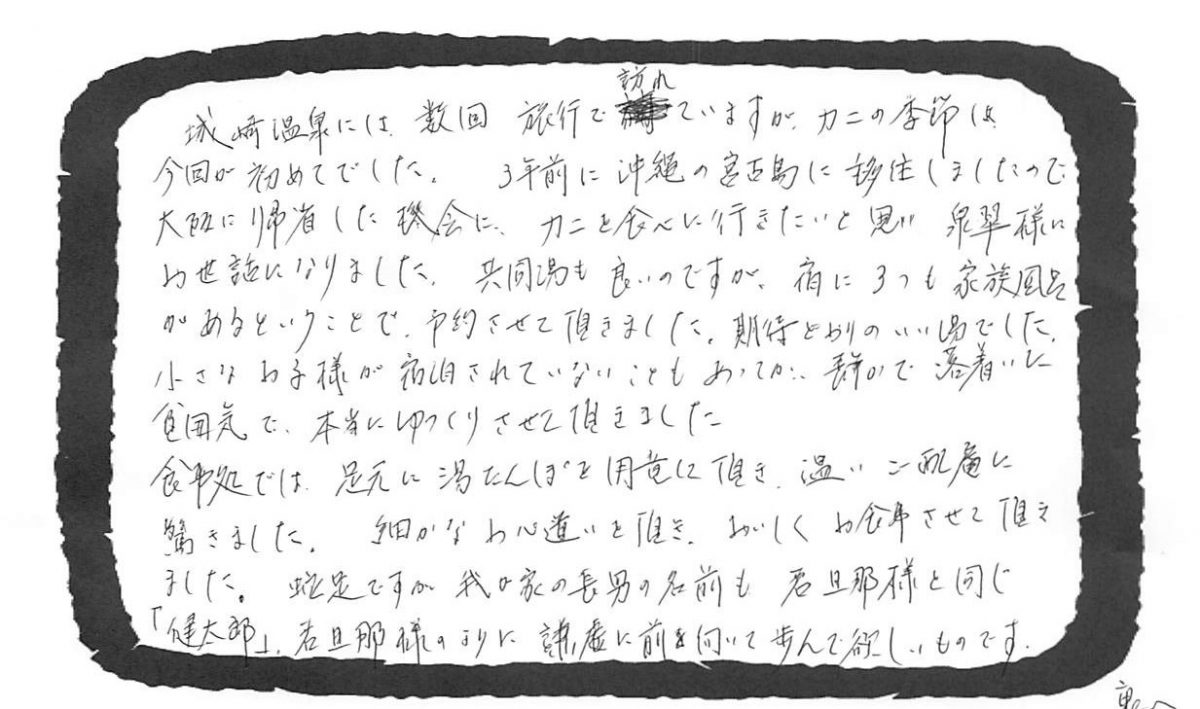 城崎温泉には、数回 旅行で訪れていますが、カニの季節は、
今回が初めてでした。 3年前に沖縄の宮古島に移住しましたので
大阪に帰省した機会に、カニを食べに行きたいと思い 泉翠様に
お世話になりました。 共同湯も良いのですが、宿に3つも家族風呂
があるということで、予約させて頂きました。期待どおりのいい湯でした。
小さなお子様が宿泊されていないこともあってか、静かで落着いた
雰囲気で、本当にゆっくりさせて頂きました
食事処では、足元に湯たんぽを用意して頂き、温いご配慮に
驚きました。 細かなお心遣いを頂き、おいしくお食事させて頂き
ました。 蛇足ですが 我が家の長男の名前も 若旦那様と同じ
「健太郎」、若旦那様のように 謙虚に前を向いて歩んで欲しいものです。